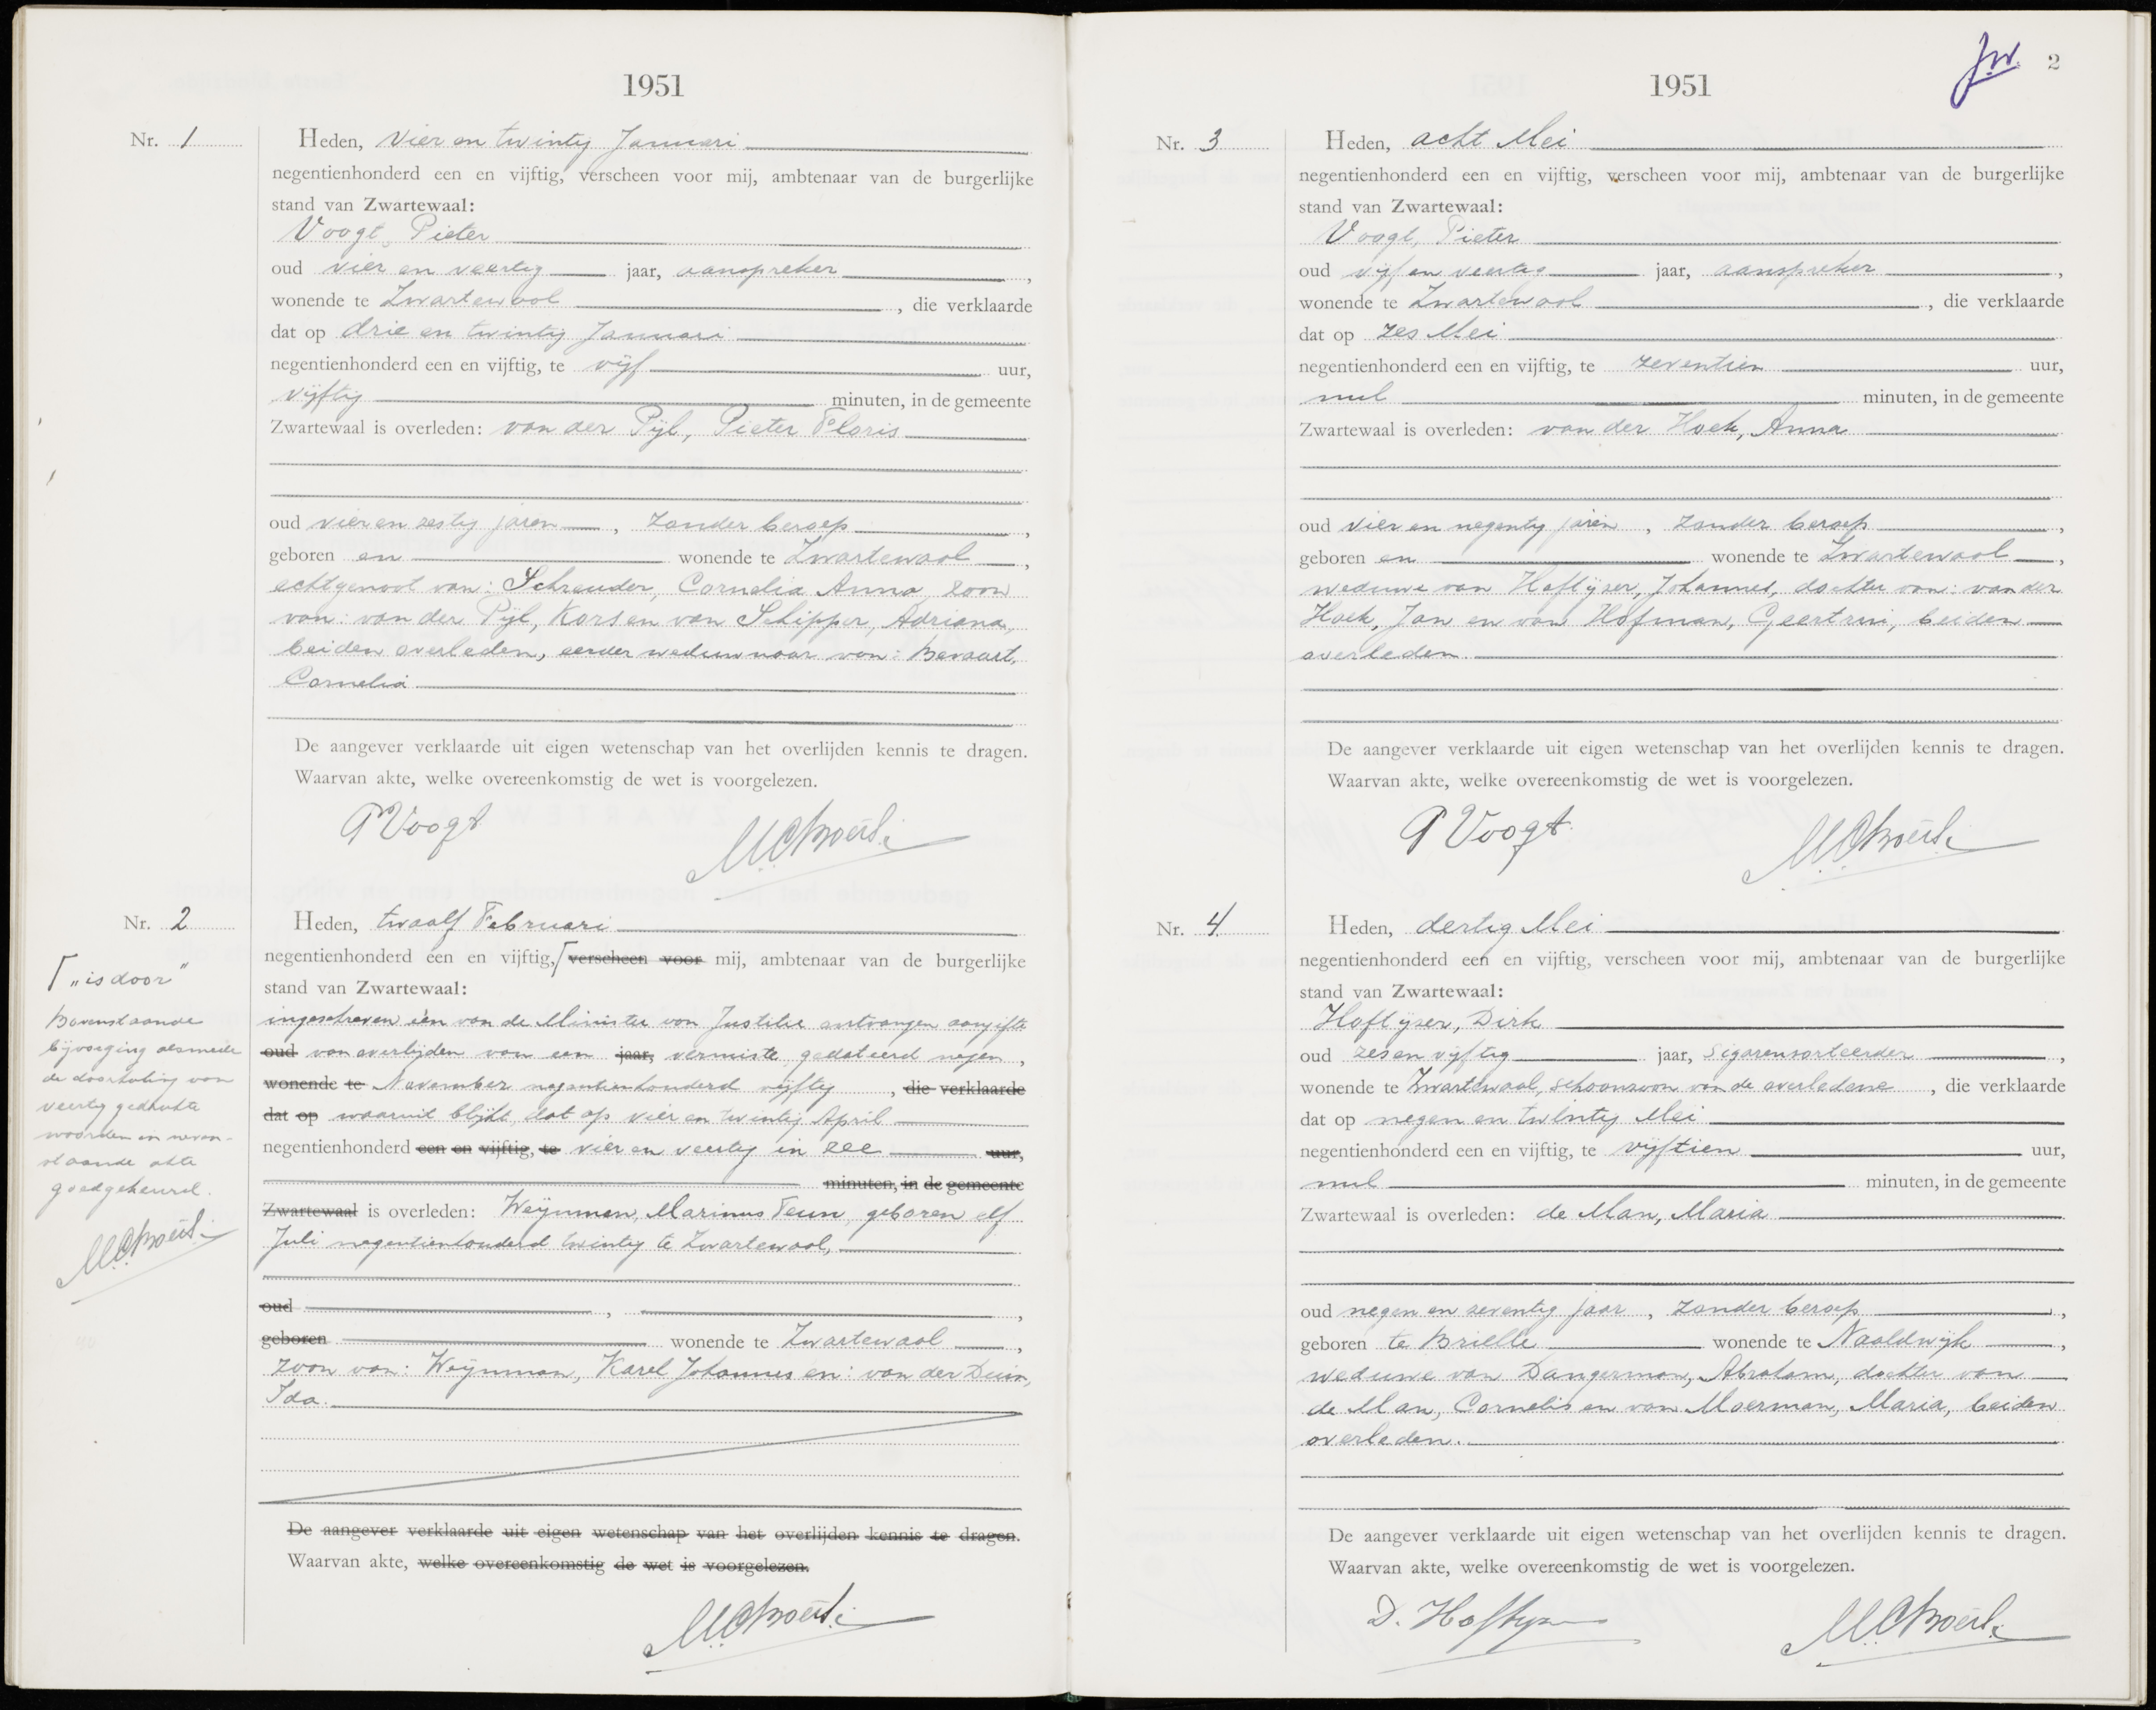 1951
Nr. 1
Heden, vier en twintig Januari
negentienhonderd een en vijftig, verscheen voor mij, ambtenaar van de burgerlijke
stand van Zwartewaal:
Voogt, Pieter
oud vier en veertig jaar, aanspreker,
wonende te Zwartewaal, die verklaarde
dat op drie en twintig Januari
negentienhonderd een en vijftig, te vijf uur,
vijftig minuten, in de gemeente
Zwartewaal is overleden: van der Pijl, Pieter Floris
oud vier en zestig jaren, zonder beroep,
geboren en wonende te Zwartewaal,
echtgenoot van: Schreuder, Cornelia Anna, zoon
van: van der Pijl, Kors en van Schipper, Adriana,
beiden overleden, eerder weduwnaar van: Bevaart,
Cornelia
De aangever verklaarde uit eigen wetenschap van het overlijden kennis te dragen.
Waarvan akte, welke overeenkomstig de wet is voorgelezen.
P Voogt
Nr. 2
Heden, twaalf Februari
negentienhonderd een en vijftig,⌈verscheen voor mij, ambtenaar van de burgerlijke
stand van Zwartewaal:
ingeschreven een van de Minister van Justitie ontvangen aangifte
oud van overlijden van een jaar, vermiste, gedateerd negen,
wonende te November negentienhonderd vijftig, die verklaarde
dat op waaruit blijkt, dat op vier en twintig April
negentienhonderd een en vijftig, te vier en veertig in zee uur,
minuten, in de gemeente
Zwartewaal is overleden: Weijnman, Marinus Teun, geboren elf
Juli negentienhonderd twintig te Zwartewaal,
oud , ,
geboren wonende te Zwartewaal,
zoon van: Weijnman, Karel Johannes en: van der Duin,
Ida.
De aangever verklaarde uit eigen wetenschap van het overlijden kennis te dragen.
Waarvan akte, welke overeenkomstig de wet is voorgelezen.
⌈ „is door"
Bovenstaande
bijvoeging alsmede
de doorhaling van
veertig gedrukte
woorden in neven-
staande akte
goedgekeurd.
1951
2
Nr. 3
Heden, acht Mei
negentienhonderd een en vijftig, verscheen voor mij, ambtenaar van de burgerlijke
stand van Zwartewaal:
Voogt, Pieter
oud vijf en veertig jaar, aanspreker,
wonende te Zwartewaal, die verklaarde
dat op zes Mei
negentienhonderd een en vijftig, te zeventien uur,
nul minuten, in de gemeente
Zwartewaal is overleden: van der Hoek, Anna
oud vier en negentig jaren, zonder beroep,
geboren en wonende te Zwartewaal,
weduwe van Hoftijser, Johannes, dochter van: van der
Hoek, Jan en van Hofman, Geertrui, beiden
overleden.
De aangever verklaarde uit eigen wetenschap van het overlijden kennis te dragen.
Waarvan akte, welke overeenkomstig de wet is voorgelezen.
P Voogt
Nr. 4
Heden, dertig Mei
negentienhonderd een en vijftig, verscheen voor mij, ambtenaar van de burgerlijke
stand van Zwartewaal:
Hoftijser, Dirk
oud zes en vijftig jaar, sigarensorteerder,
wonende te Zwartewaal, schoonzoon van de overledene, die verklaarde
dat op negen en twintig Mei
negentienhonderd een en vijftig, te vijftien uur,
nul minuten, in de gemeente
Zwartewaal is overleden: de Man, Maria
oud negen en zeventig jaar, zonder beroep,
geboren te Brielle wonende te Naaldwijk,
weduwe van Dangerman, Abraham, dochter van
de Man, Cornelis en van Moerman, Maria, beiden
overleden.
De aangever verklaarde uit eigen wetenschap van het overlijden kennis te dragen.
Waarvan akte, welke overeenkomstig de wet is voorgelezen.
D. Hoftijser